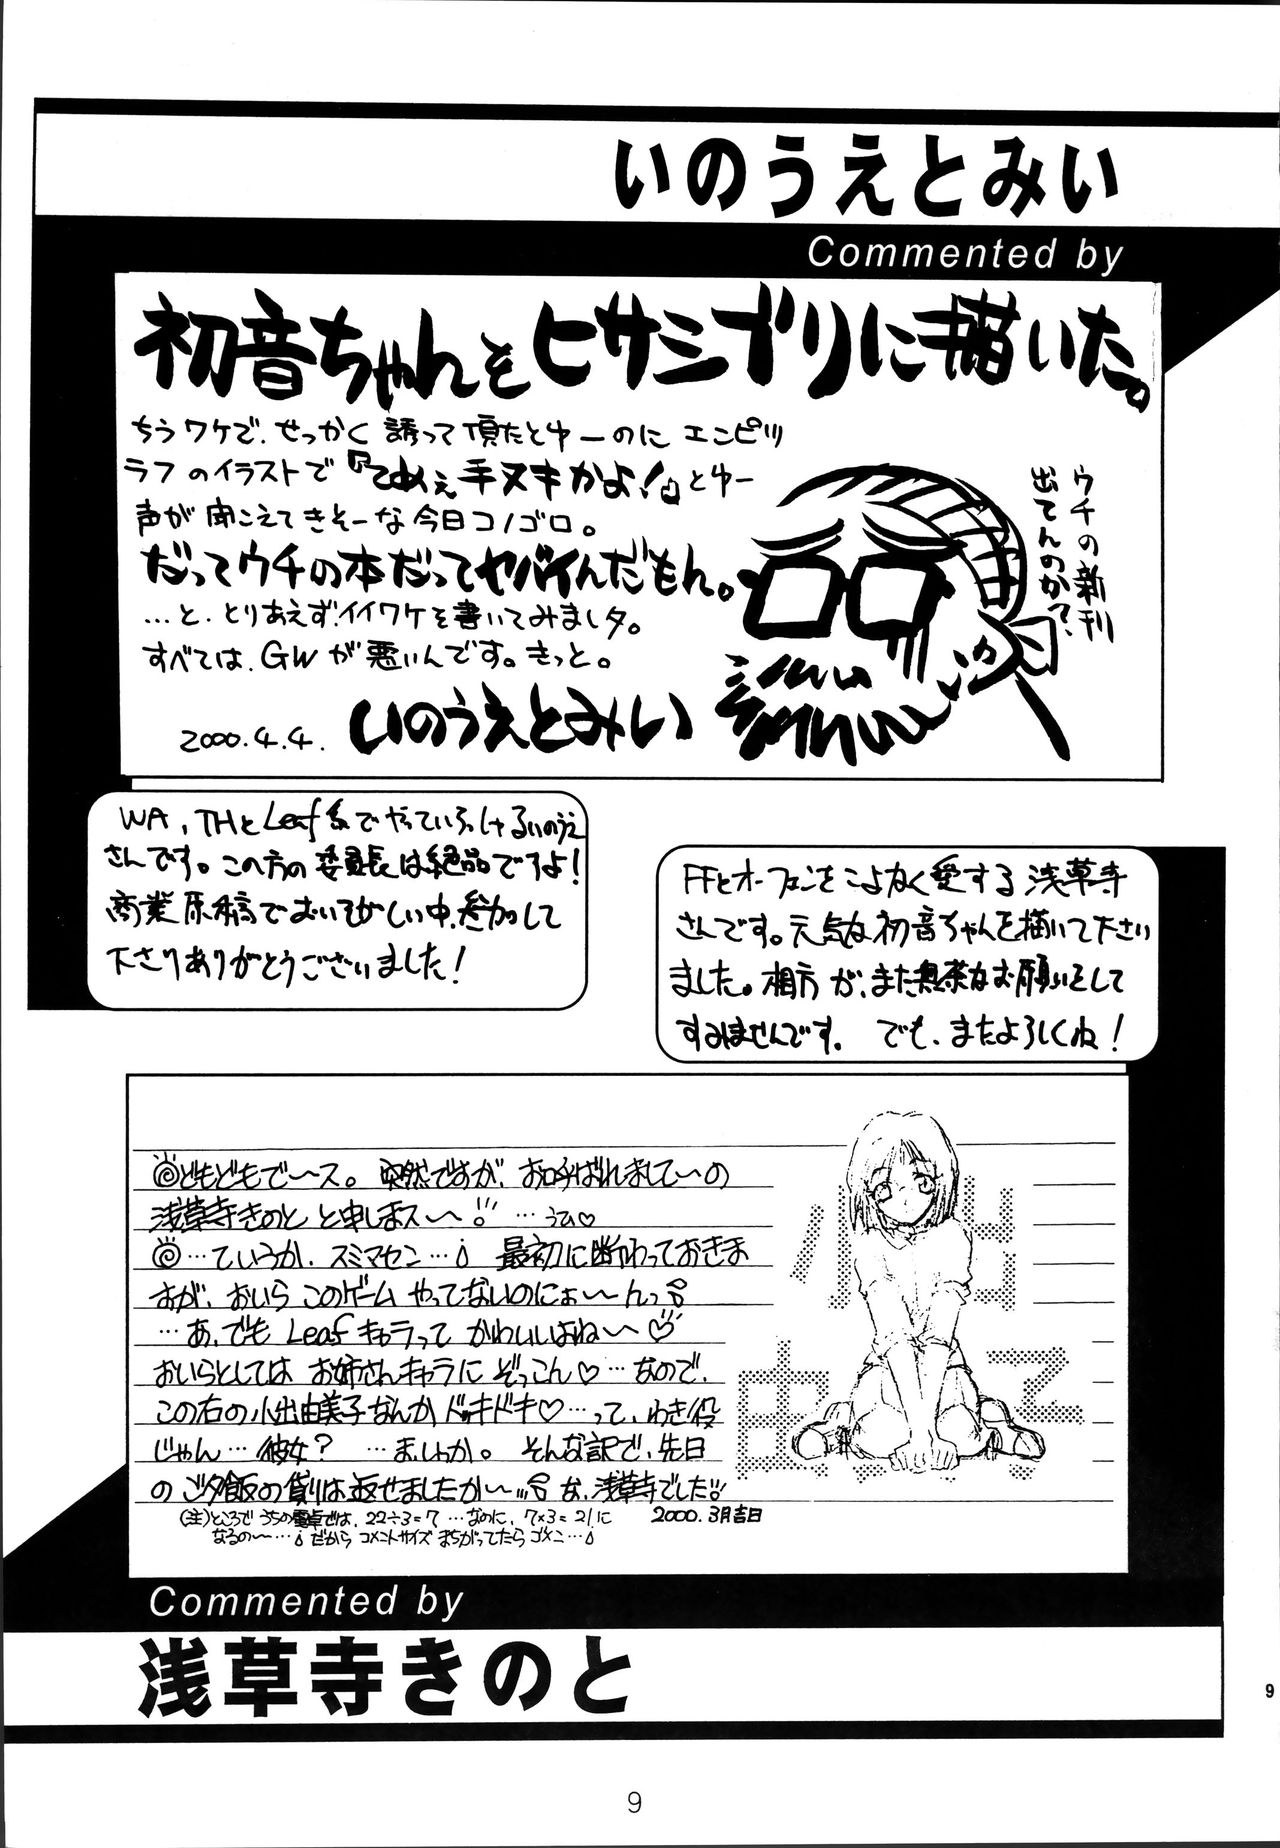 いのうえとみい
Commented by
初音ちゃんをヒサシブリに描いた。
ちうワケで、せっかく誘って頂たとゆーのにエンピツ
ラフのイラストで『てめぇ手ヌキかよ!』とゆー
声が聞こえてきそーな今日コノゴロ。
だってウチの本だってヤバイんだもん。
…と、とりあえずイイワケを書いてみましタ。
すべては、GWが悪いんです。きっと。
2000.4.4. いのうえとみい
ウチの新刊
出てんのか?
WA、THとLeaf系でやっていらっしゃるいのうえ
さんです。この方の委員長は絶品ですよ!
商業原稿でおいそがしい中、参加して
下さりありがとうございました!
FFとオーフェンをこよなく愛する浅草寺
さんです。元気な初音ちゃんを描いて下さい
ました。相方が、また無茶なお願いをして
すみませんです。 でも、またよろしくね!
どもどもで〜ス。 突然ですが、お呼ばれしまして〜の
浅草寺きのと と申しまス〜! …うひ♡
…ていうか、スミマセン… 最初に断わっておきま
すが、おいら このゲーム やってないのにぉ〜んっ
…あ、でも Leafキャラって かわいいよね〜♡
おいらとしては お姉さんキャラに ぞっこん♡…なので、
この右の小出由美子なんか ドッキドキ♡…って、わき役
じゃん…彼女? …ま、しゃか。 そんな訳で、先日
の ご夕飯の貸りは返せましたか〜… な、浅草寺でした!!
(注)ところで うちの電卓では、22÷3=7 …なのに、7×3=21に
なるの〜… だから コメントサイズ まちがってたら ゴメン…
2000.3月吉日
小出
由美子
Commented by
浅草寺きのと
9
9